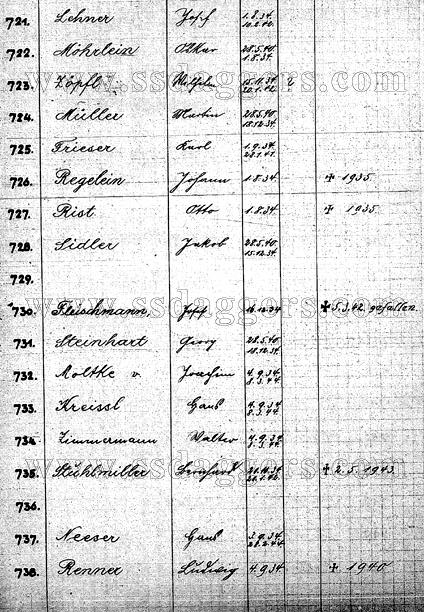 721. Lehner Josef 1.8.34. 10.2.42.
722. Möhrlein Otkar 28.5.40. 1.8.34.
www.ssdaggers.com
723. Zöpfl Wilhelm 15.11.34. 20.1.42. ?
724. Müller Martin 28.5.40. 15.12.34.
725. Frieser Karl 1.9.34. 28.1.41.
726. Regelein Johann 1.8.34. ✝ 1935.
727. Rist Otto 1.8.34. ✝ 1935.
www.ssdaggers.com
728. Sidler Jakob 28.5.40. 15.12.34.
729.
www.ssdaggers.com
730. Fleischmann, Josef 16.12.34 ✝ 5.3.42. gefallen.
731. Steinhart Georg 28.5.40. 18.12.34.
732. Moltke v. Joachim 4.9.34. 8.3.44.
733. Kreissl Hans 4.9.34. 8.3.44.
734. Zimmermann Walter 4.9.34. 8.3.44.
735. Stühlmiller Bernhard 20.1.42. ✝ 2.5.1943.
www.ssdaggers.com
736.
737. Neeser Hans 28.2.44.
738. Renner Ludwig 4.9.34 ✝ 1940.